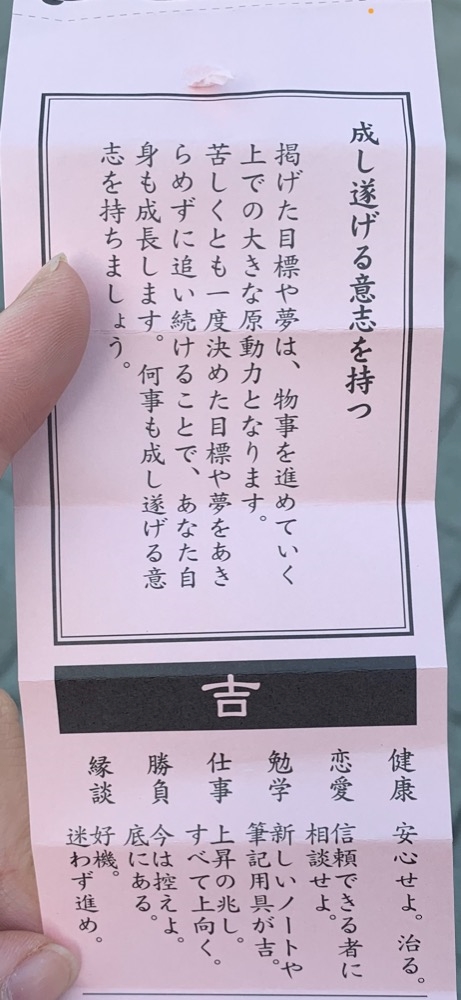 成し遂げる意志を持つ
掲げた目標や夢は、物事を進めていく
上での大きな原動力となります。
苦しくとも一度決めた目標や夢をあき
らめずに追い続けることで、あなた自
身も成長します。何事も成し遂げる意
志を持ちましょう。
吉
健康 安心せよ。治る。
恋愛 信頼できる者に
相談せよ。
勉学 新しいノートや
筆記用具が吉。
仕事 上昇の兆し。
すべて上向く。
勝負 今は控えよ。
底にある。
縁談 好機。
迷わず進め。